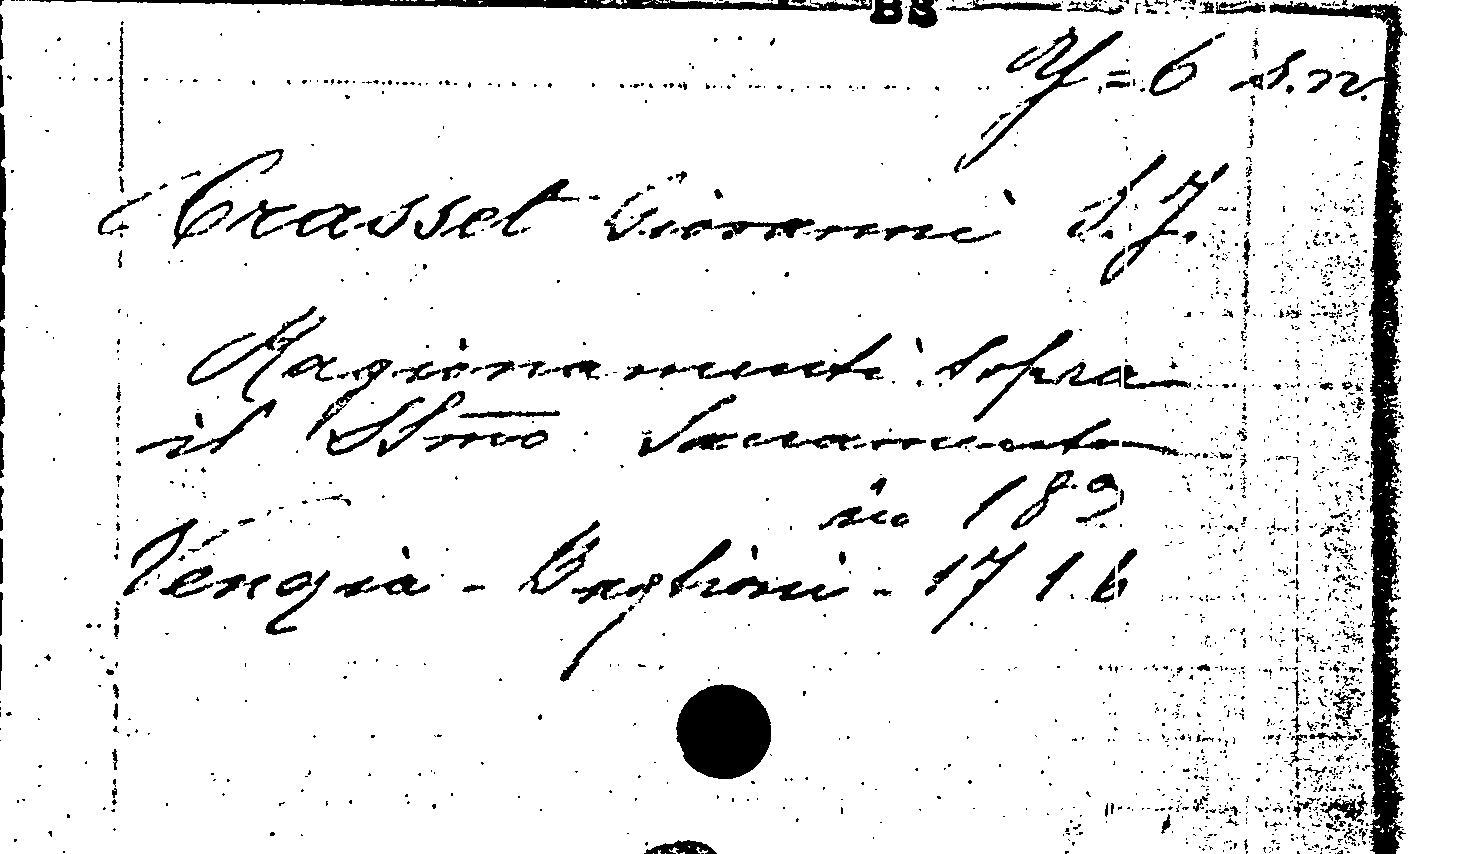 BS
Y=6 s.n.
Crasset Giovanni S.J.
Ragionamenti sopra
il SSmo Sacramento
in 18°
Venezia - Baglioni - 1716